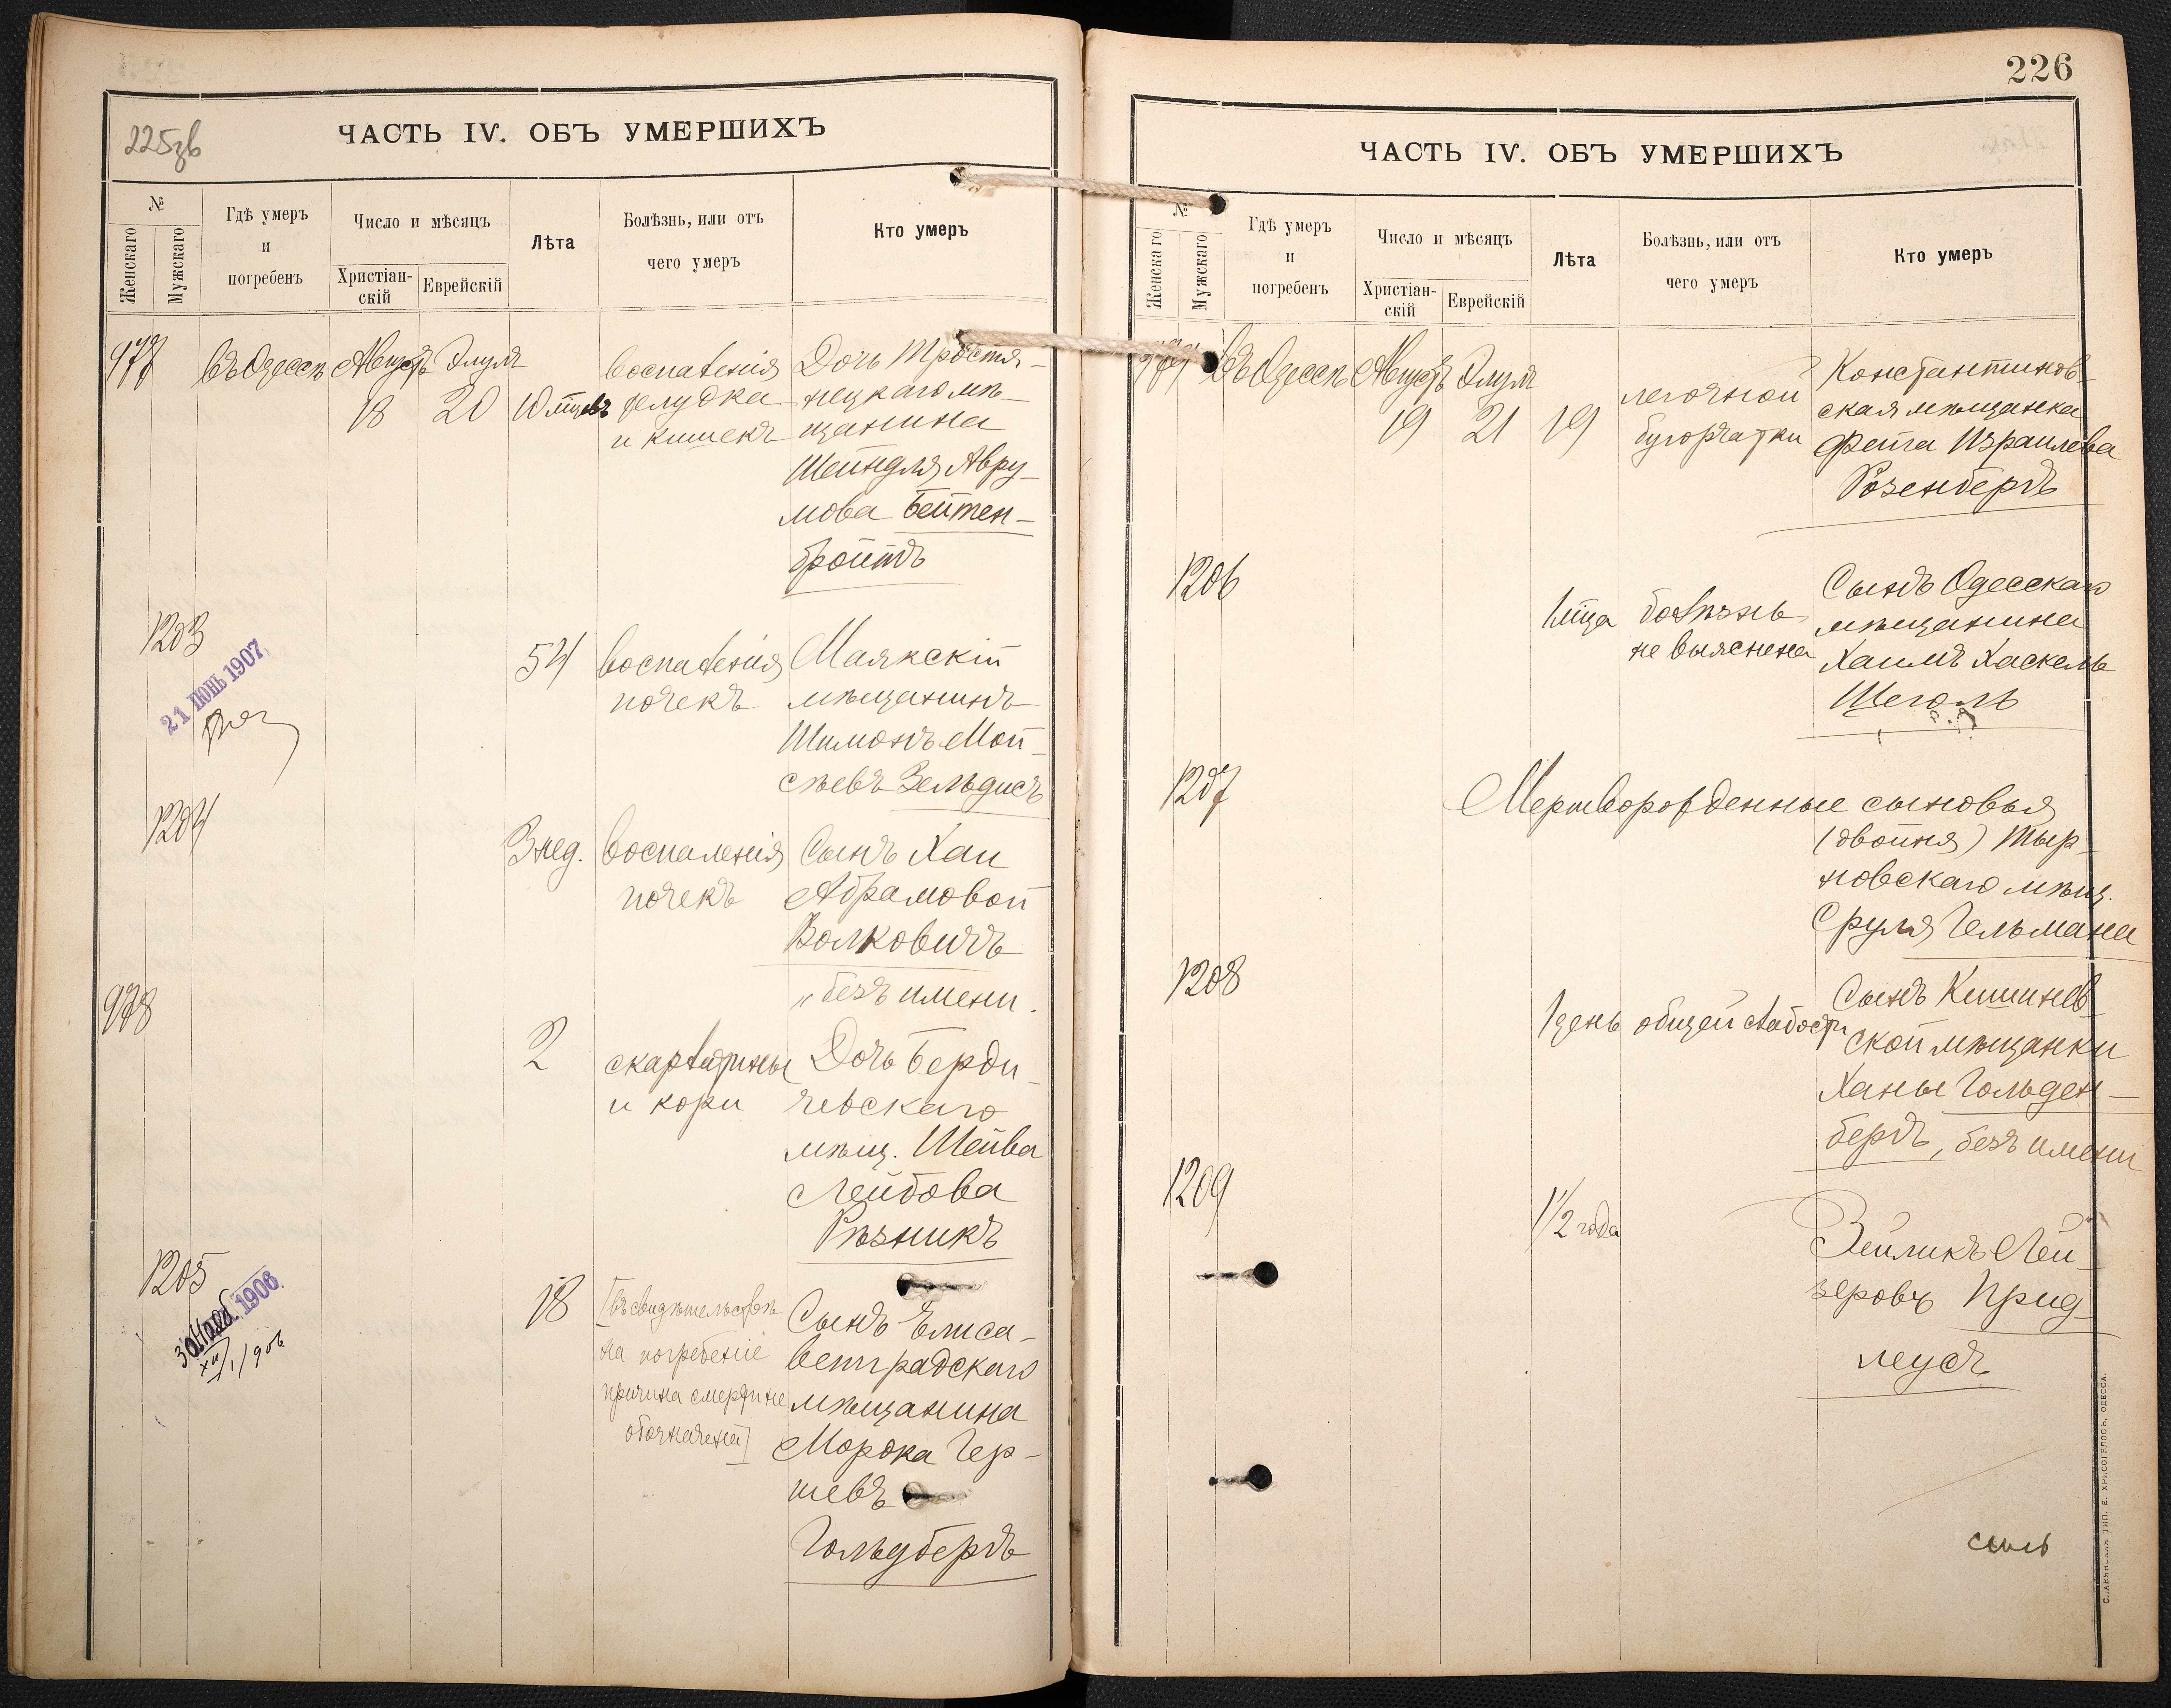 225зв
ЧАСТЬ IV. ОБЪ УМЕРШИХЪ
№
Женскаго
Мужскаго
Гдѣ умеръ
и
погребенъ
Число и мѣсяцъ
Христіан-
скій
Еврейскій
Лѣта
Болѣзнь, или отъ
чего умеръ
Кто умеръ
977
въ Одессѣ
Августъ
18
Элулъ
20
10 мцевъ
воспаленія
желудка
и кишекъ
Дочь Тростя-
нецкаго мѣ-
щанина
Шейндля Авру-
мова Бейтен-
бройтъ
1203
21 ІЮНЬ 1907
54
воспаленія
почекъ
Маякскій
мѣщанинъ
Шимонъ Мой-
сѣевъ Зельдисъ
1204
3 нед.
воспаленія
почекъ
Сынъ Хаи
Абрамовой
Волковичъ
„безъ имени.
978
2
скарлатины
и кори
Дочь Берди-
чевскаго
мѣщ. Шейва
Лейбова
Рѣзникъ
1205
30 Нояб. 1906
XII/1/906
18
[въ свидѣтельствѣ
на погребеніе
причина смерти не
обозначена]
Сынъ Елиса-
ветградскаго
мѣщанина
Мордка Гер-
шевъ
Гольдбергъ
226
ЧАСТЬ IV. ОБЪ УМЕРШИХЪ
№
Женскаго
Мужскаго
Гдѣ умеръ
и
погребенъ
Число и мѣсяцъ
Христіан-
скій
Еврейскій
Лѣта
Болѣзнь, или отъ
чего умеръ
Кто умеръ
979
въ Одессѣ
Августъ
19
Элулъ
21
19
легочной
бугорчатки
Константинов-
ская мѣщанка
Фейга Израилева
Розенбергъ
1206
1 мца
болѣзнь
не выяснена
Сынъ Одесскаго
мѣщанина
Хаимъ Хаскель
Щеголь
1207
Мертворожденные сыновья
(двойня) Тыр-
новскаго мѣщ.
Сруля Гельмана
1208
1 день
общей слабости
Сынъ Кишинев-
ской мѣщанки
Ханы Гольден-
бергъ, безъ имени
1209
1 1/2 года
Зейликъ Лей-
зеровъ Прид-
леусъ
СЛАВЯНСКАЯ ТИП. Е. ХРИСОГЕЛОСЪ, ОДЕССА.